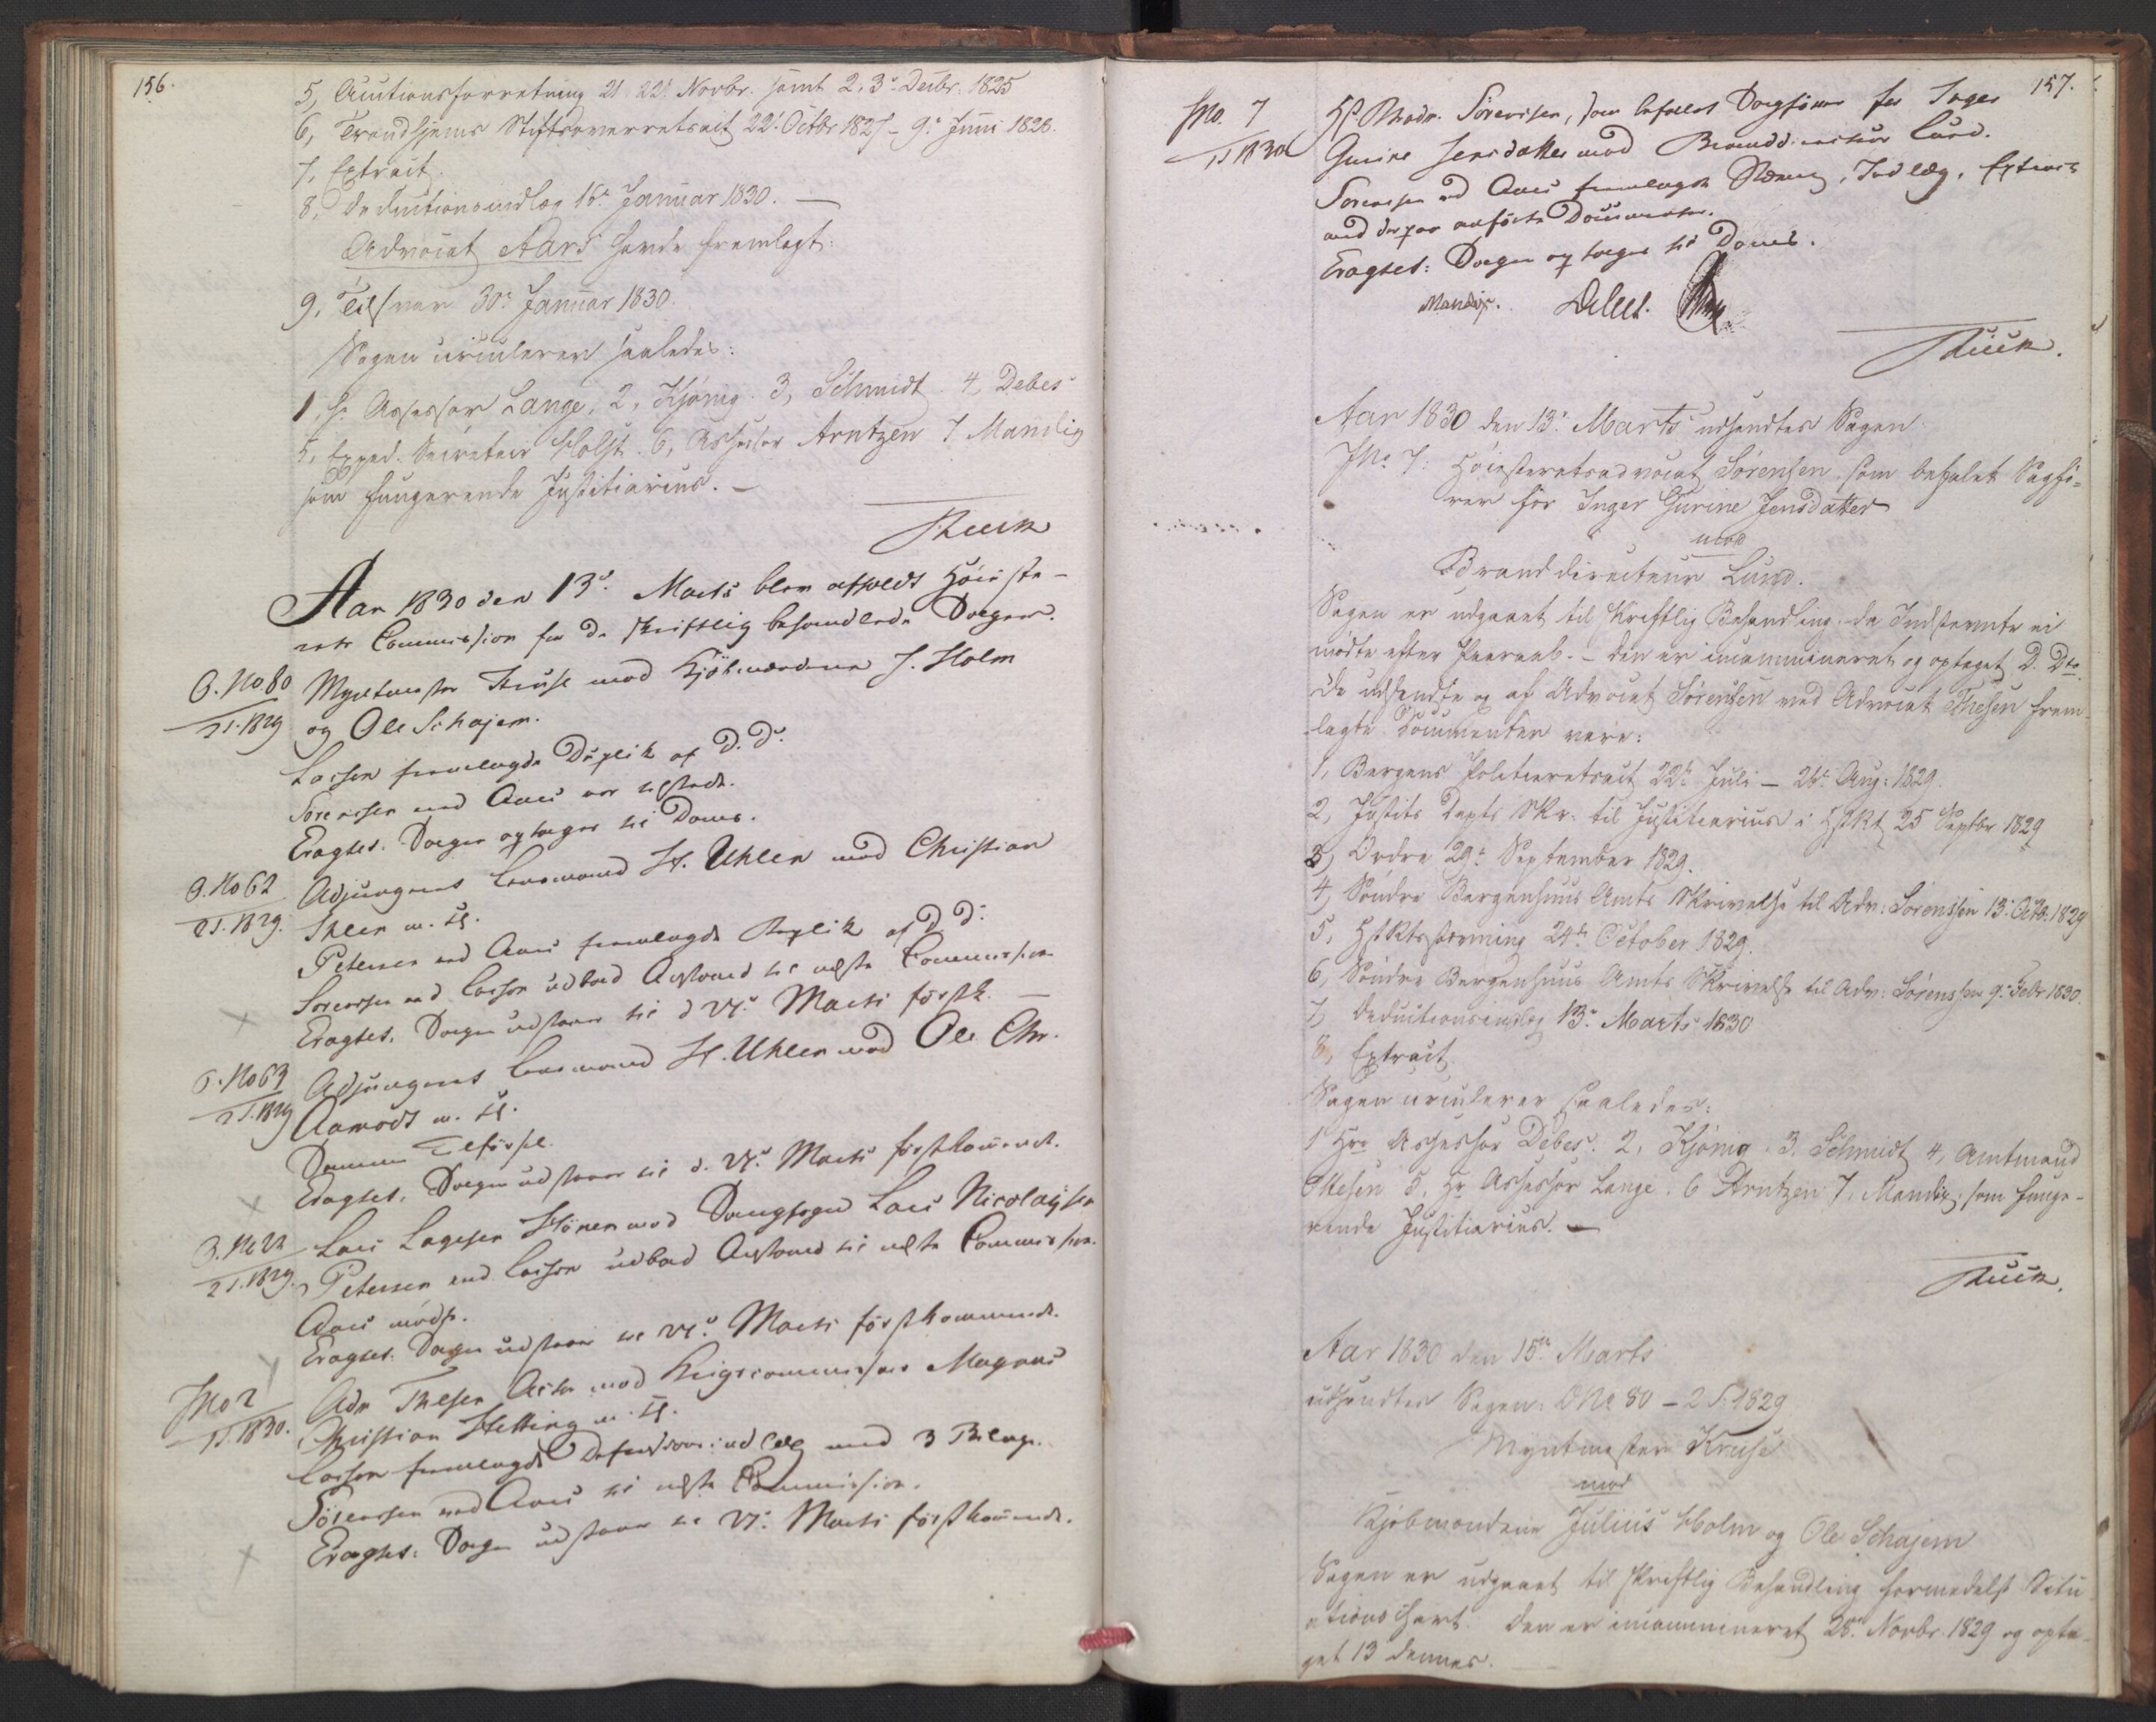 156.
5, Auctionsforretning 21 22d Novbr. samt 2, 3d Decbr. 1825
6, Trondhjems Stiftsoverretsact 22d Octbr 1827 - 9d Juni 1828.
7, Extract.
8, Deductionsindlæg 16d Januar 1830. —
Advocat Aars havde fremlagt:
9, Tilsvar 30d Januar 1830.
Sagen circulerer saaledes:
1, Hr Assessor Lange, 2, Kjønig. 3, Schmidt. 4, Debes
5, Exped. Secretair Holst. 6, Assessor Arntzen 7 Mandix
som fungerende Justitiarius. —
Aar 1830 den 13d Marts blev afholdt Høieste-
rets Commission for de skriftlig behandlede Sager.
O. No. 80
2 S. 1829
Myntmester Kruse mod Kjøbmændene J. Holm
og Ole Schajem.
Lasson fremlagde Duplik af D. D.
Sørensen med Aars var tilstede.
Eragtet. Sagen optages til Doms.
O. No 62
2 S. 1829.
Adjungeret Lensmand H. Uhlen mod Christian
Ihlen m. fl.
Petersen med Aars fremlagde Replik af D D.
Sørensen med Lasson udbad Anstand til næste Commission
Eragtet. Sagen udstaaer til d 27d Marts førstk. —
O. No 63
2 S. 1829
Adjungeret Lensmand H. Uhlen mod Ole Chr.
Aamodt m. fl.
Samme Tilførsel.
Eragtet. Sagen udstaaer til d. 27d Marts førstkommende.
O. No 22
2 S. 1829.
Lars Lagesen mod Lars Nicolaysen
Petersen med Lasson udbad Anstand til næste Commission.
Aars mødte.
Eragtet. Sagen udstaaer til 27d Marts førstkommende.
J No 2
1 S. 1830.
Adv Thesen Actor mod Krigscommissair Magnus
Christian Hetting m. fl.
Lasson fremlagde Defensionsindlæg med 3 Bilage.
Sørensen med Aars til næste Commission.
Eragtet: Sagen udstaaer til 27d Marts førstkommende.
157.
J No. 7
1 S 1830
Sørensen, som befalet Sagfører for Inger
Gurine Jensdatter mod Branddirecteur Lund.
Sørensen med Aars fremlagde Stævning, Indlæg, Extract
med derpaa anførte Documenter.
Eragtet: Sagen optages til Doms.
Mandix. Debes.
Aar 1830 den 13d Marts udsendtes Sagen
J No. 7: Høiesteretsadvocat Sørensen, som befalet Sagfø-
rer for Inger Gurine Jensdatter
mod
Branddirecteur Lund.
Sagen er udgaaet til skriftlig Behandling, da Indstevnte ei
mødte efter Paaraab. - Den er incammineret og optaget D. Dto.
De udsendte og af Advocat Sørensen med Advocat Thesen frem-
lagte Documenter vare:
1, Bergens Politieretsact 22d Juli — 26d Aug: 1829.
2, Justits Depts Skr. til Justitiarius i HstRt 25 Septbr 1829
3, Ordre 29d September 1829.
4, Søndre Bergenhuus Amts Skrivelse til Adv: Sørenssen 13d Octb: 1829
5, HstRtsstævning 24d October 1829.
6, Søndre Bergenhuus Amts Skrivelse til Adv: Sørenssen 9d Febr 1830.
7, Deductionsindlæg 13d Marts 1830
8, Extract.
Sagen circulerer saaledes:
1 Hrr Assessor Debes. 2, Kjønig. 3, Schmidt 4, Amtmand
Thesen 5, Hr Assessor Lange. 6 Arntzen 7, Mandix, som funge-
rende Justitiarius. —
Aar 1830 den 15de Marts
udsendtes Sagen: O No 80 - 2 S. 1829
Myntmester Kruse
mod
Kjøbmændene Julius Holm og Ole Schajem
Sagen er udgaaet til skriftlig Behandling formedelst Situ
ationschart. Den er incammineret 28d Novbr. 1829 og opta-
get 13 dennes. —